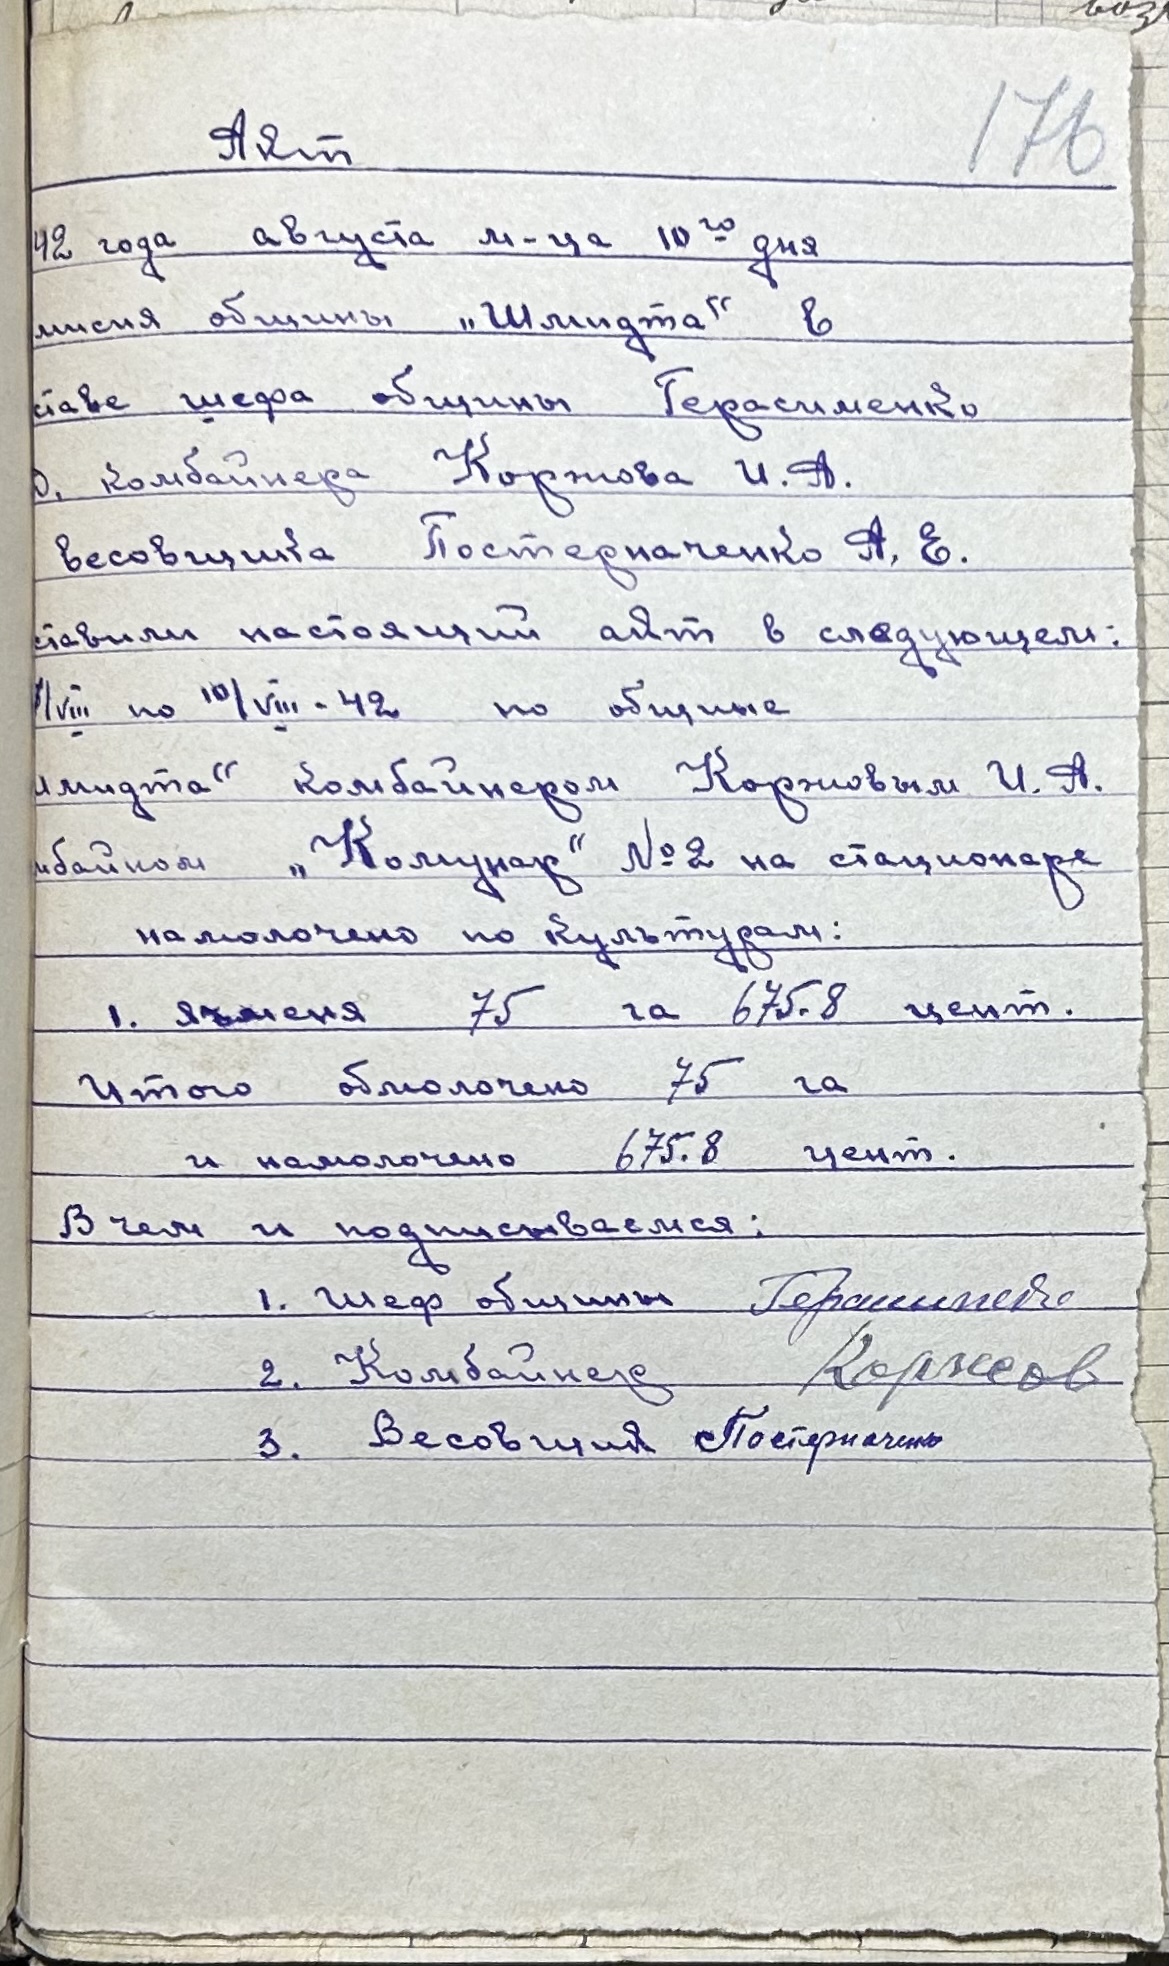 176
Акт
42 года августа м-ца 10го дня
мисия общины „Шмидта“ в
ставе шефа общины Герасименко
комбайнера Коржова И. А.
весовщика Постерначенко А. Е.
ставили настоящий акт в следующем:
/VIII по 10/VIII-42 по общине
мидта“ комбайнером Коржовым И. А.
мбайном „Комунар“ №2 на стационаре
намолочено по культурам:
1. ячменя 75 га 675.8 цент.
Итого обмолочено 75 га
и намолочено 675.8 цент.
В чем и подписываемся:
1. Шеф общины Герасименко
2. Комбайнер Коржов
3. Весовщик Постерначенко